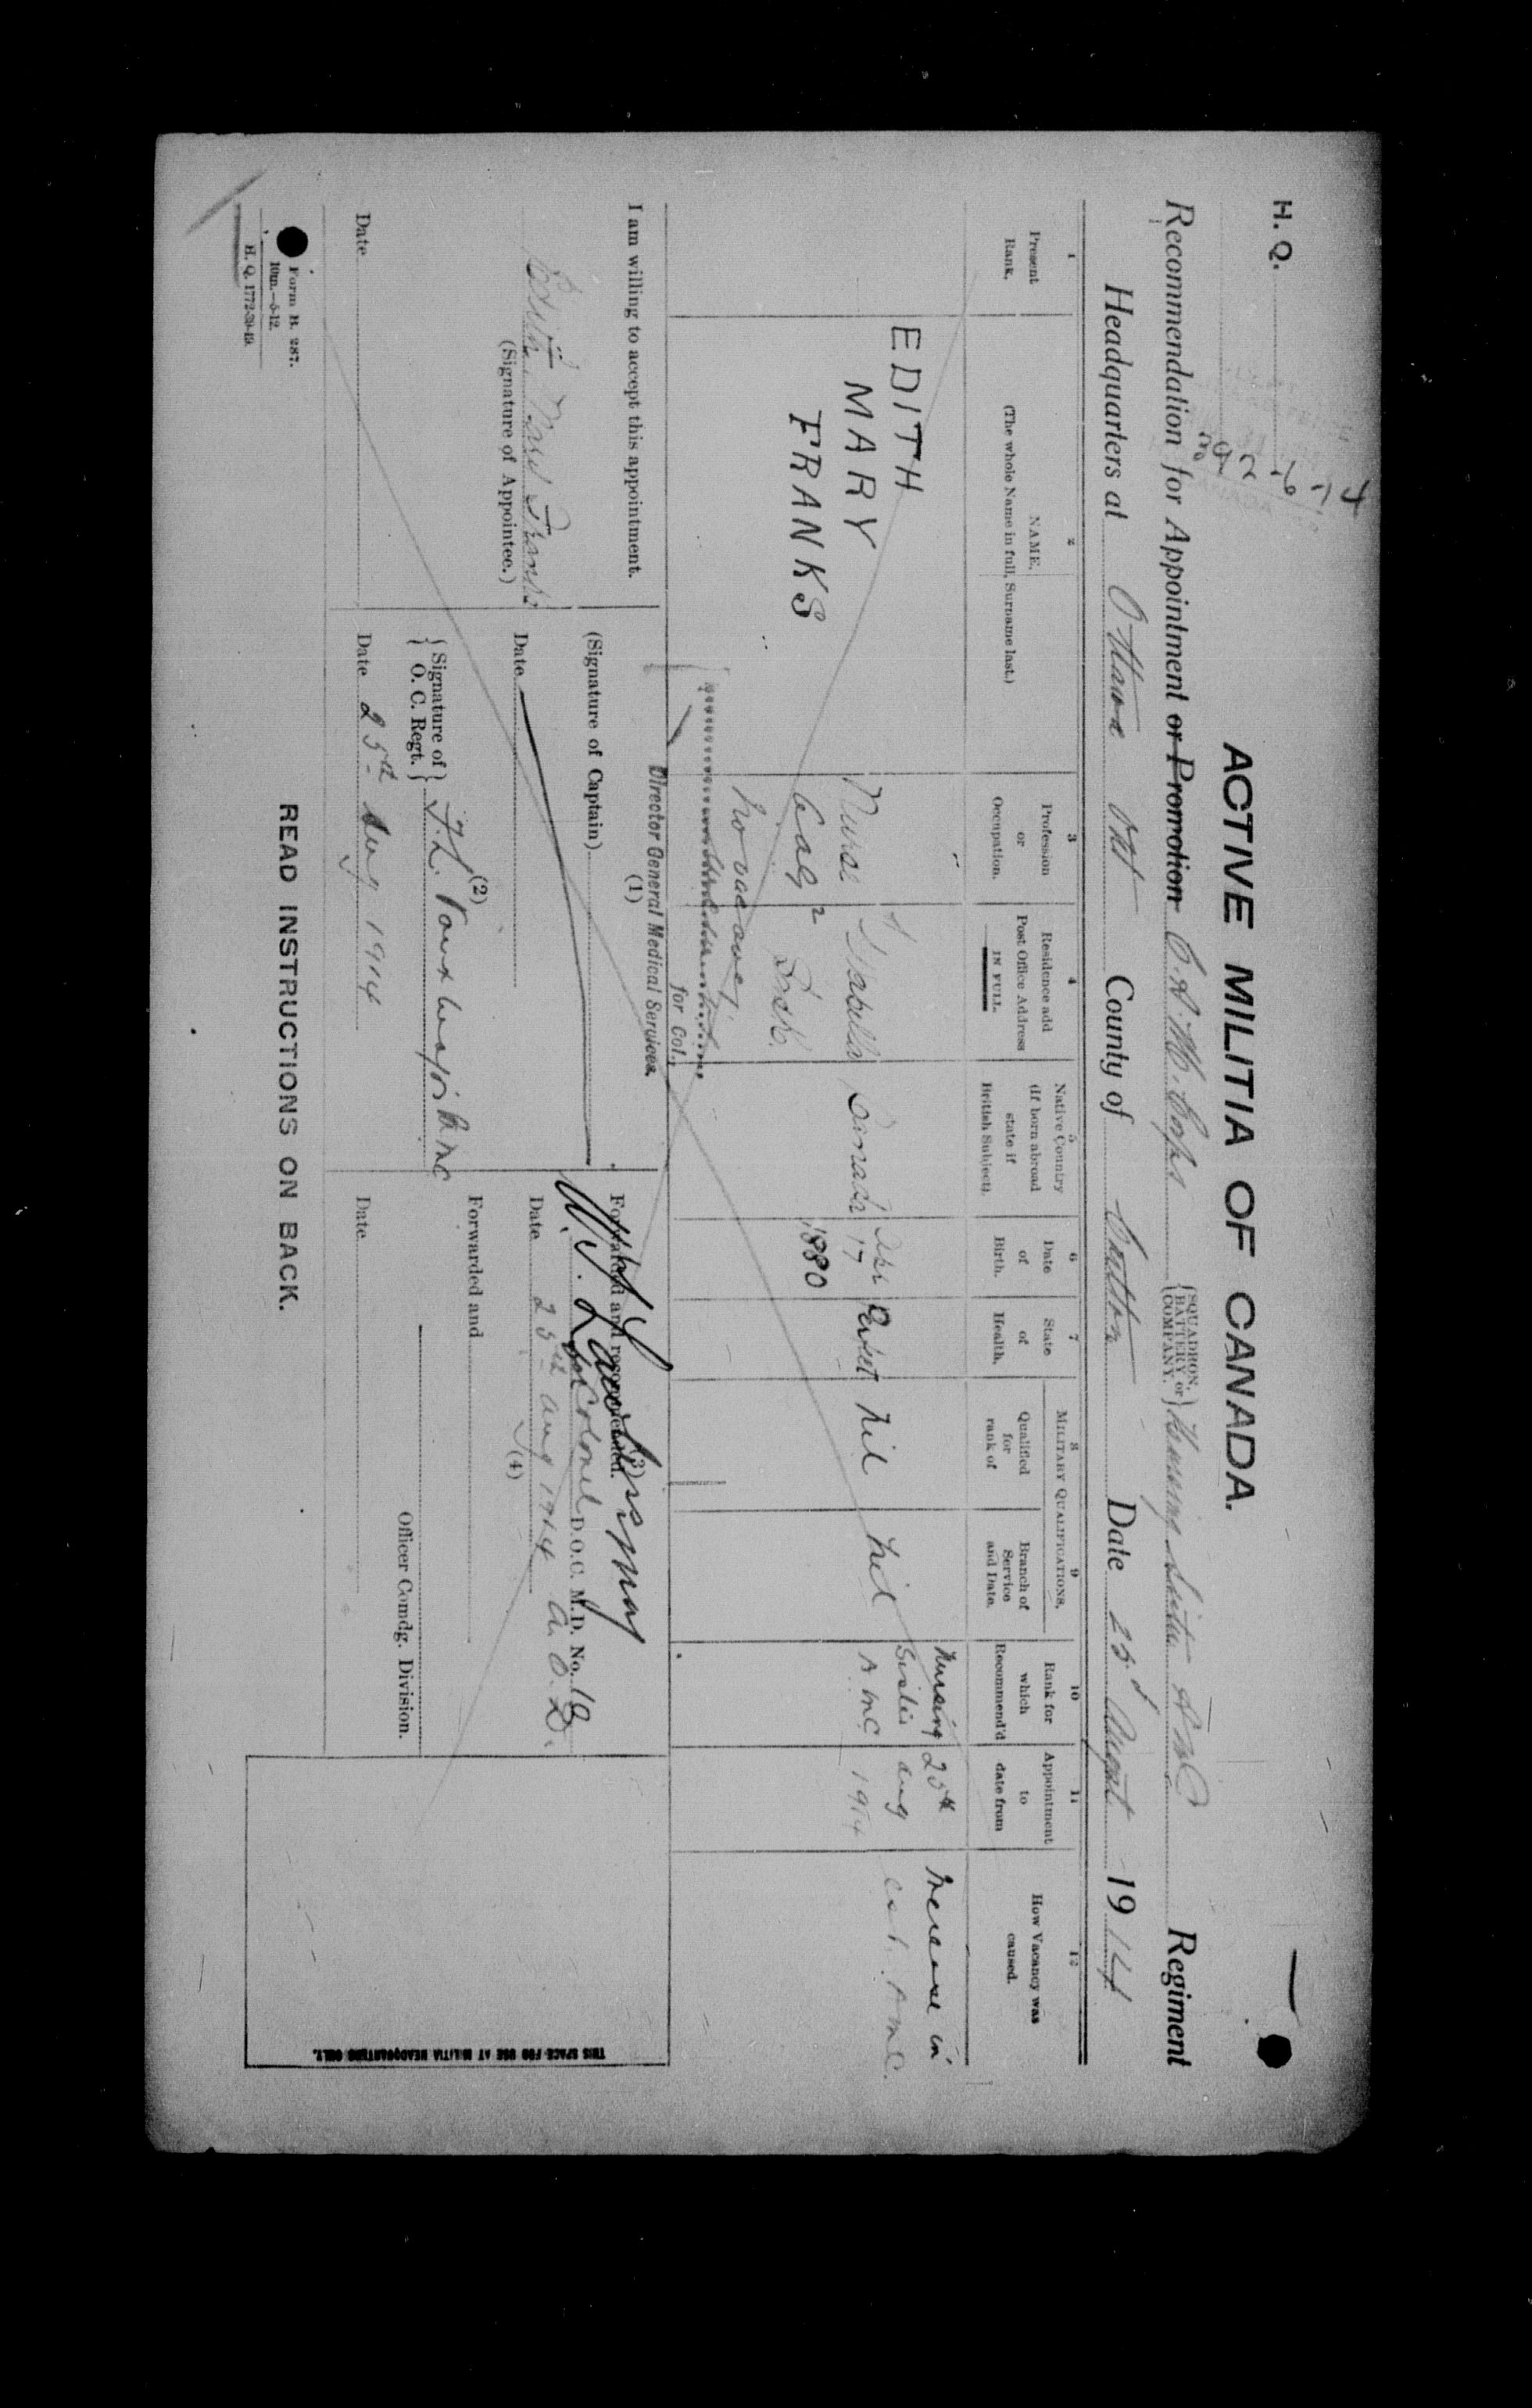 H. Q. 392-6-74
ACTIVE MILITIA OF CANADA.
Recommendation for Appointment or Promotion C.A.M. Corps {SQUADRON, BATTERY or COMPANY.} Nursing Sister AMC Regiment
Headquarters at Ottawa Ont County of Carleton Date 25 August 1914
1
Present
Rank.
2
NAME.
(The whole Name in full, Surname last.)
3
Profession
or
Occupation.
4
Residence add
Post Office Address
IN FULL.
5
Native Country
(If born abroad
state if
British Subject).
6
Date
of
Birth.
7
State
of
Health.
MILITARY QUALIFICATIONS.
8
Qualified
for
rank of
9
Branch of
Service
and Date.
10
Rank for
which
Recommend'd
11
Appointment
to
date from
12
How Vacancy was
caused.
EDITH
MARY
FRANKS
Nurse
Canada
17
1880
Perfect
Nil
Nil
Nursing
Sister
AMC
25th
Aug
1914
Increase in
est. AMC.
no vacancy
for Col.,
Director General Medical Services.
I am willing to accept this appointment.
Edith Mary Franks
(Signature of Appointee.)
Date
(1)
(Signature of Captain)
Date
(2)
{Signature of
O. C. Regt.}
Date 25th Aug 1914
(3)
Forwarded and recommended.
for Colonel D.O.C. M.D. No.
Date 25th Aug 1914
(4)
Forwarded and
Officer Comdg. Division.
Date
THIS SPACE FOR USE AT MILITIA HEADQUARTERS ONLY.
Form B. 287.
10m.—5-12.
H. Q. 1772-39-49.
READ INSTRUCTIONS ON BACK.